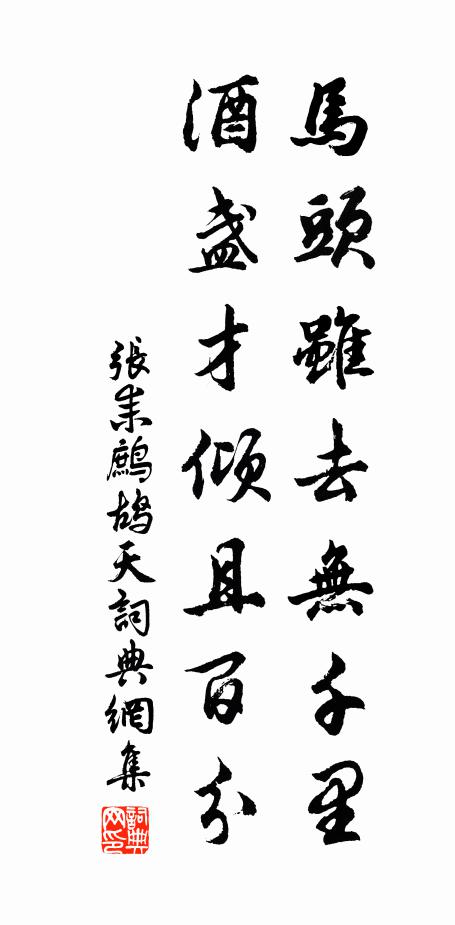 馬頭雖去無千里
酒盞才傾且百分
張耒鷓鴣天詞典網集
詞典
网印